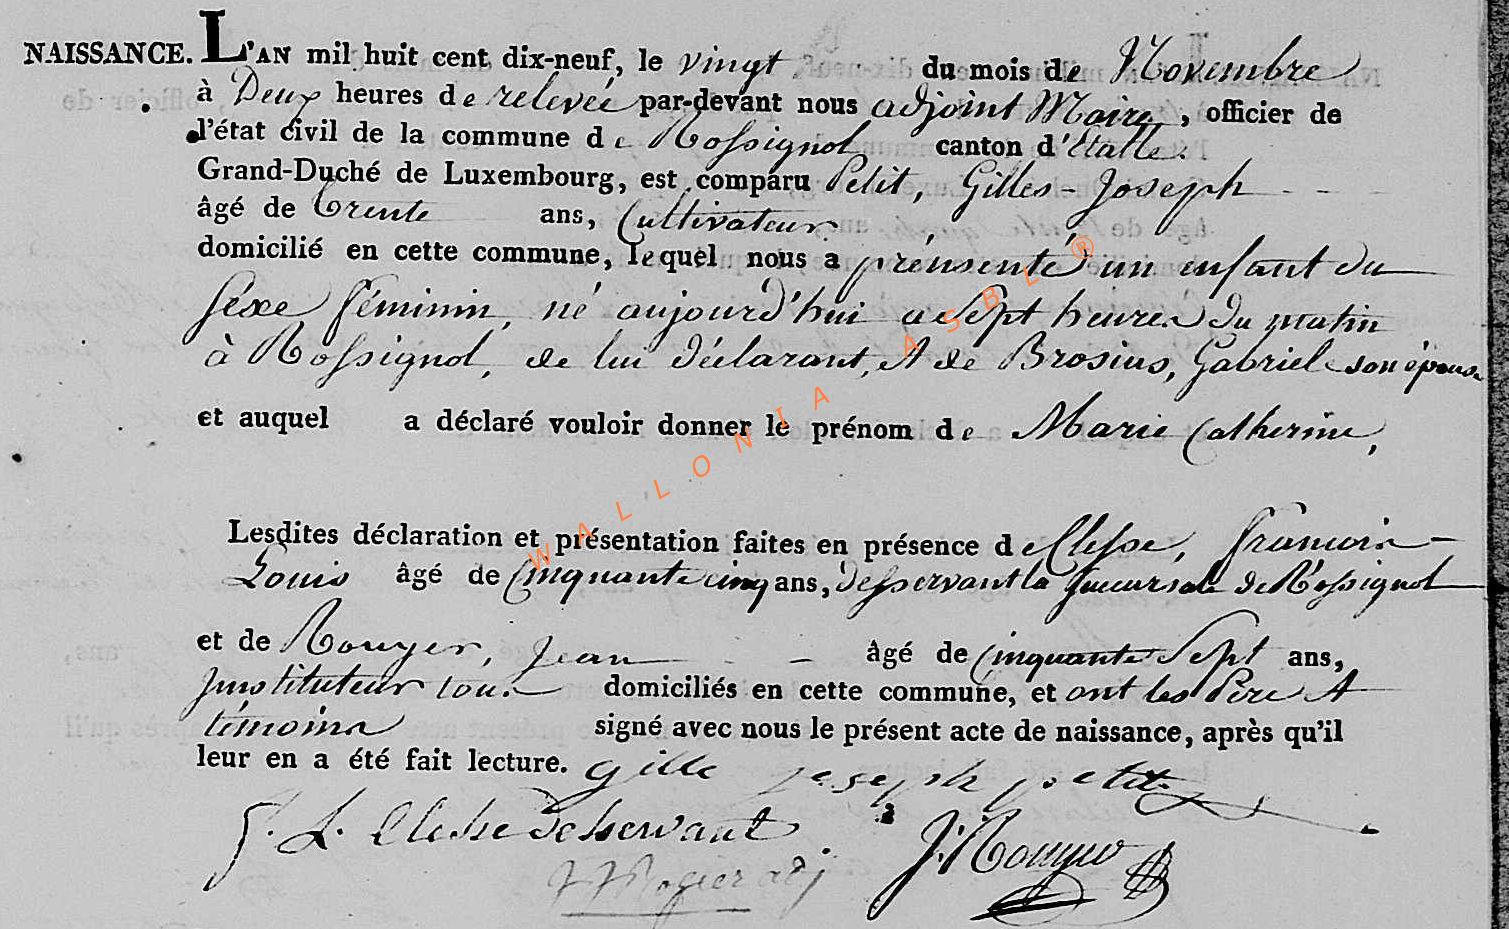 NAISSANCE. L'AN mil huit cent dix-neuf, le vingt du mois de Novembre
à Deux heures de relevée par-devant nous adjoint Maire, officier de
l'état civil de la commune de Rossignol canton d'Etalle.
Grand-Duché de Luxembourg, est comparu Petit, Gilles-Joseph - - -
âgé de trente ans, Cultivateur
domicilié en cette commune, lequel nous a présenté un enfant du
séxe féminin, né aujourd'hui a sept heures du matin
à Rossignol, de lui déclarant, et de Brosius, Gabriele son épouse
et auquel a déclaré vouloir donner le prénom de Marie Catherine,
Lesdites déclaration et présentation faites en présence de Clesse, françois-
Louis âgé de Cinquante cinq ans, desservant la succursale de Rossignol
et de Rouyer, Jean - - âgé de Cinquante Sept ans,
Instituteur tous domiciliés en cette commune, et ont les Père et
témoins signé avec nous le présent acte de naissance, après qu'il
leur en a été fait lecture. gille joseph petit
f. L. Clesse desservant J. Rouyer
adj
WALLONIA ASBL ®